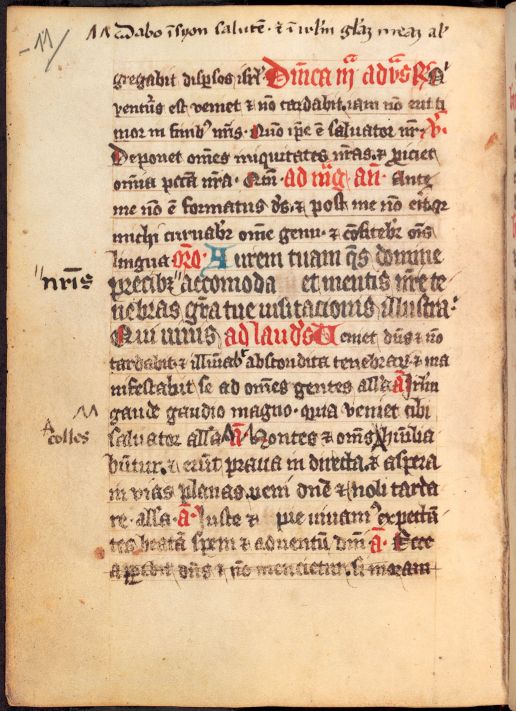 11
dabo in syon salutē ⁊ ī irl̄m gl̄az meaz al'
gregabit dispsos isr̄l Dn̄ica iij adv̄s R̄ Q
ventur9 est veniet ⁊ nō tardabit iam nō erit ti
mor in finib9 nr̄is Qm̄ ip̄e ē saluator nr̄ V̄
Deponet om̄es iniquitates nr̄as ⁊ ꝓiciet
om̄ia pctā nr̄a Qm̄ ad mg̅ an̄ Ante
me nō ē formatus ds̄ ⁊ post me nō erit qr
michi curuabr̄ om̄e genu ⁊ cōfitebr̄ om̄s
lingua or̄o Aurem tuam qs̄ domine
nr̄is
precib9 " accomoda et mentis nr̄e te
nebras gratie tue uisitacionis illustra
Qui uiuis ad laudes Veniet dn̄s ⁊ nō
tardabit ⁊ illuīab' abscondita tenebrarꝝ ⁊ ma
nifestabit se ad om̄es gentes all'a ā irl̄m
gaude gaudio magno quia veniet tibi
A
colles
saluator all'a ā Montes ⁊ om̄s humilia
būtur ⁊ erūt praua in directa ⁊ aspera
in vias planas veni dn̄e ⁊ noli tarda
re all'a ā Iuste ⁊ pie uiuam9 expectā
tes beatā spem ⁊ aduentū dn̄i ā Ecce
apparebit dn̄s ⁊ nō mencietur si moram